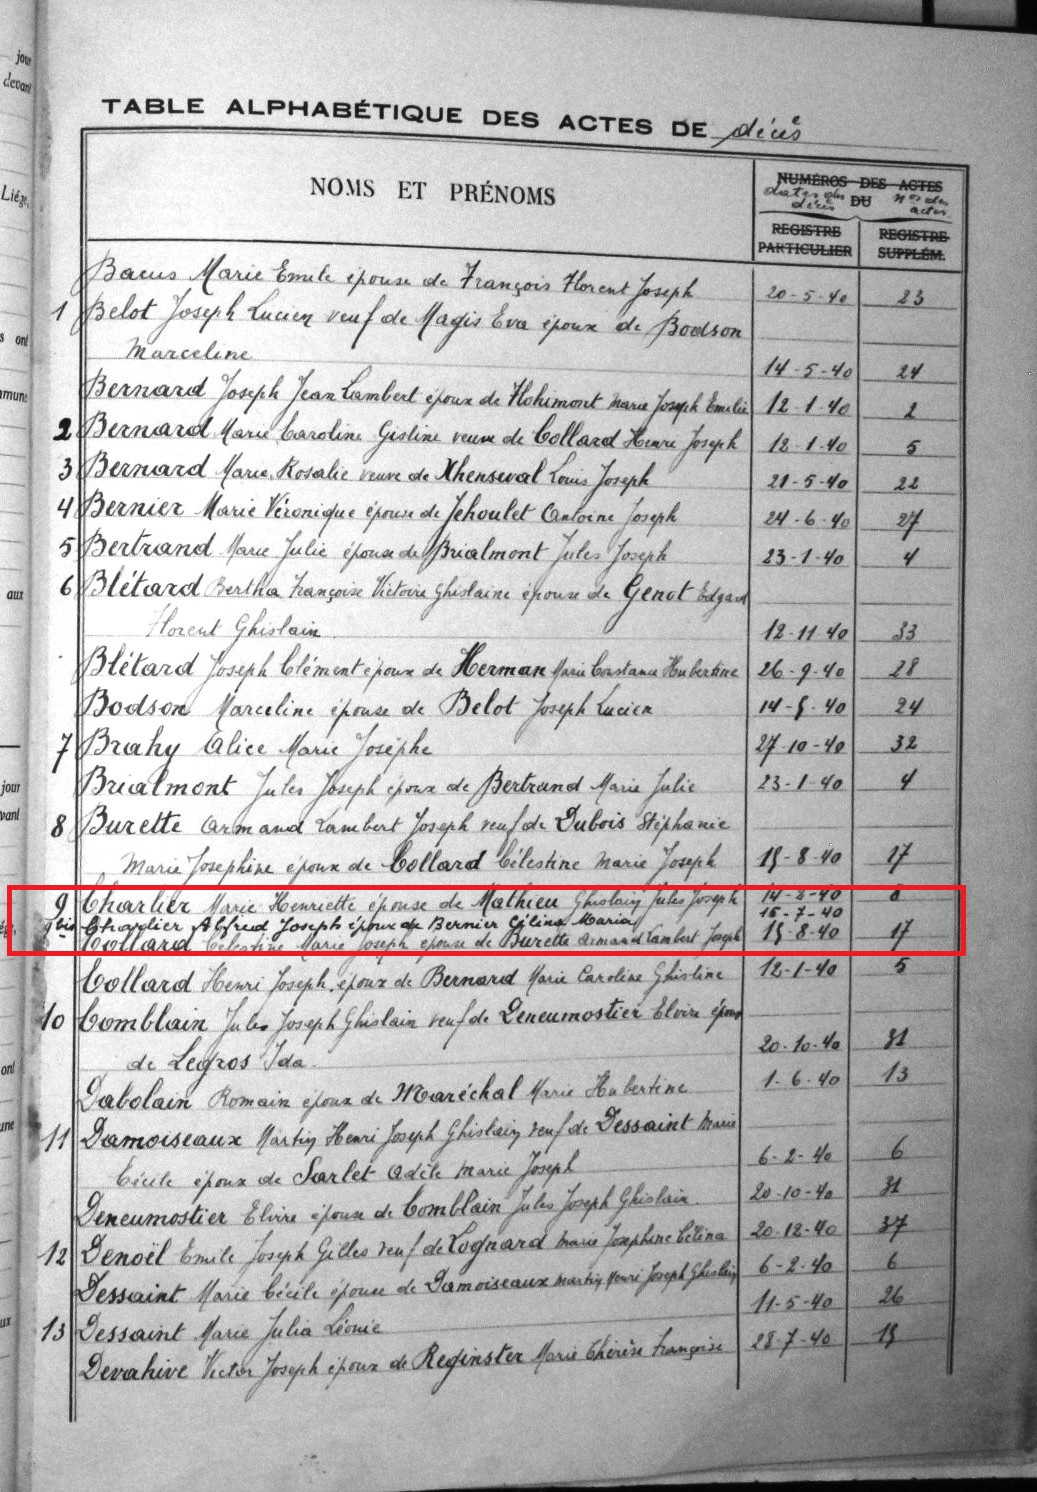 jour
devant
Liége,
s ont
mmune
aux
jour
vant
ont
une
ux
TABLE ALPHABÉTIQUE DES ACTES DE décès
NOMS ET PRÉNOMS
NUMÉROS DES ACTES
dates des décès DU Nos des actes
REGISTRE PARTICULIER REGISTRE SUPPLÉM.
Bacus Marie Emile épouse de François Florent Joseph 20-5-40 23
1 Belot Joseph Lucien veuf de Magis Eva époux de Bodson
Marceline 14-5-40 24
Bernard Joseph Jean Lambert époux de Flohimont Marie Joseph Emilie 12-1-40 2
2 Bernard Marie Caroline Gisline veuve de Collard Henri Joseph 12-1-40 5
3 Bernard Marie Rosalie veuve de Xhenseval Louis Joseph 21-5-40 22
4 Bernier Marie Véronique épouse de Jehoulet Antoine Joseph 24-6-40 27
5 Bertrand Marie Julie épouse de Brialmont Jules Joseph 23-1-40 4
6 Blétard Bertha Françoise Victoire Ghislaine épouse de Genot Edgard
Florent Ghislain 12-11-40 33
Blétard Joseph Clément époux de Herman Marie Constance Hubertine 26-9-40 28
Bodson Marceline épouse de Belot Joseph Lucien 14-5-40 24
7 Brahy Alice Marie Josèphe 27-10-40 32
Brialmont Jules Joseph époux de Bertrand Marie Julie 23-1-40 4
8 Burette Armand Lambert Joseph veuf de Dubois Stéphanie
Marie Josephine époux de Collard Célestine Marie Joseph 15-8-40 17
9 Charlier Marie Henriette épouse de Mathieu Ghislain Jules Joseph 14-2-40 8
9bis Charlier Alfred Joseph époux de Bernier Célina Maria 15-7-40
Collard Célestine Marie Joseph épouse de Burette Armand Lambert Joseph 15-8-40 17
Collard Henri Joseph, époux de Bernard Marie Caroline Ghisline 12-1-40 5
10 Comblain Jules Joseph Ghislain veuf de Deneumostier Elvire époux
de Legros Ida. 20-10-40 31
Dabolain Romain époux de Maréchal Marie Hubertine 1-6-40 13
11 Damoiseaux Martin Henri Joseph Ghislain veuf de Dessaint Marie
Cécile époux de Sarlet Adèle Marie Joseph 6-2-40 6
Deneumostier Elvire épouse de Comblain Jules Joseph Ghislain. 20-10-40 31
12 Denoël Emile Joseph Gilles veuf de Lognard Marie Josephine Célina 20-12-40 37
Dessaint Marie Cécile épouse de Damoiseaux Martin Henri Joseph Ghislain 6-2-40 6
13 Dessaint Marie Julia Léonie 11-5-40 26
Devahive Victor Joseph époux de Reginster Marie Thérèse Françoise 28-7-40 15